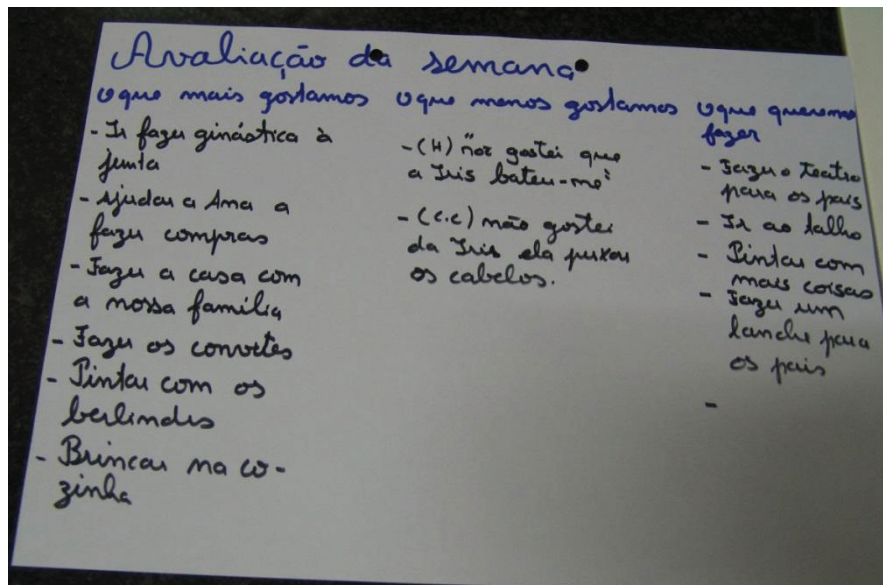 Avaliação da semana
o que mais gostamos
- Ir fazer ginástica à
junta
- Ajudar a Ana a
fazer compras
- Fazer a casa com
a nossa família
- Fazer os convites
- Pintar com os
berlindes
- Brincar na co-
zinha
o que menos gostamos
- (H) "não gostei que
a Iris bateu-me"
- (C.C) não gostei
da Iris ela puxou
os cabelos.
o que queremos
fazer
- Fazer o teatro
para os pais
- Ir ao talho
- Pintar com
mais coisas
- Fazer um
lanche para
os pais
-